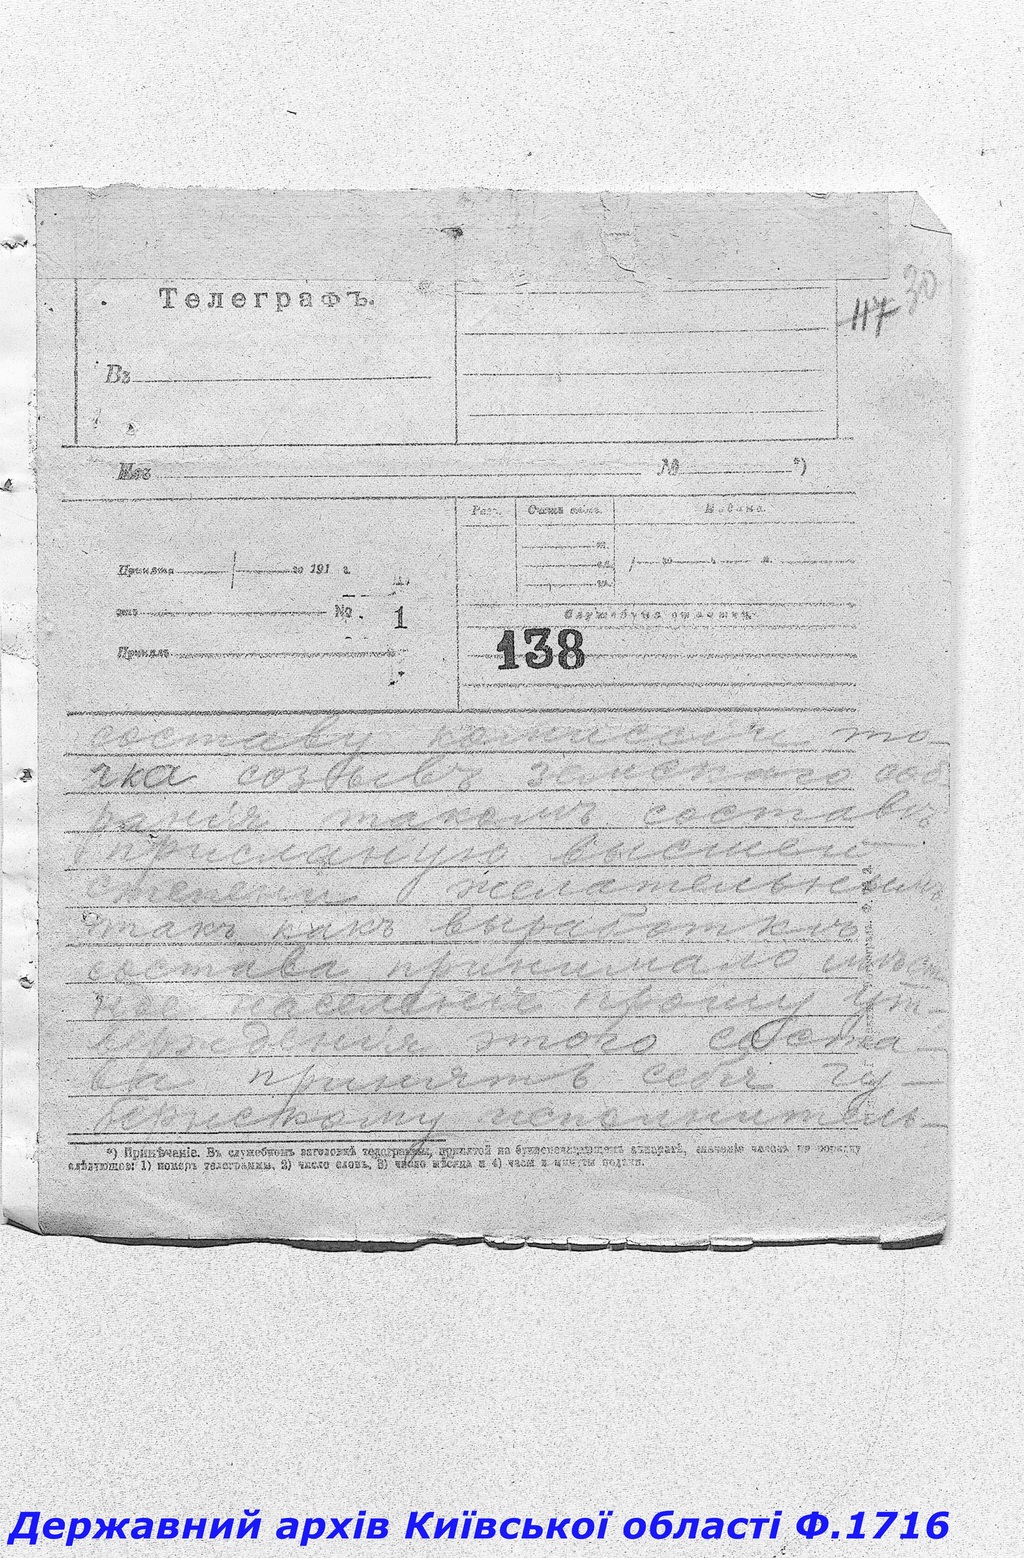 30
117
Телеграфъ.
Въ
Изъ № *)
Разр. Счетъ словъ. Подана
Принята го 191 г.
№ 1
Служебныя отмѣтки.
138
Принялъ
составу комиссіи то-
чка созывъ земскаго соб
ранія такомъ составѣ
присланую высшей
степени желательнымъ
такъ какъ выработкѣ
состава принимало мѣст
ное населеніе прошу ут-
вержденія этого соста-
ва принять себя гу-
бернскому исполнитель-
*) Примѣчаніе. Въ служебномъ заголовкѣ телеграммы, принятой на буквопечатающемъ аппаратѣ, значеніе чиселъ по порядку
слѣдующее: 1) номеръ телеграммы, 2) число словъ, 3) число мѣсяца и 4) часы и минуты подачи.
Державний архів Київської області Ф.1716